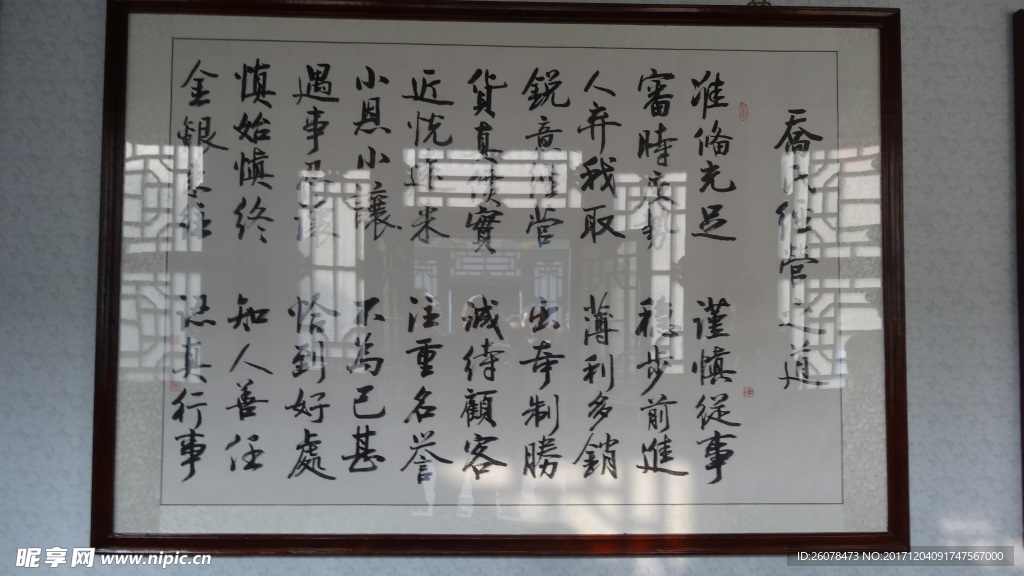 喬氏經營之道
准偹充足 謹慎從事
審時度勢 穩步前進
人弃我取 薄利多銷
銳意經營 出奇制勝
貨真價實 誠待顧客
近悦远来 注重名誉
小恩小讓 不為已甚
遇事忍讓 恰到好處
慎始慎終 知人善任
金銀往 認真行事
昵享网 www.nipic.cn
ID:26078473 NO:20171204091747567000